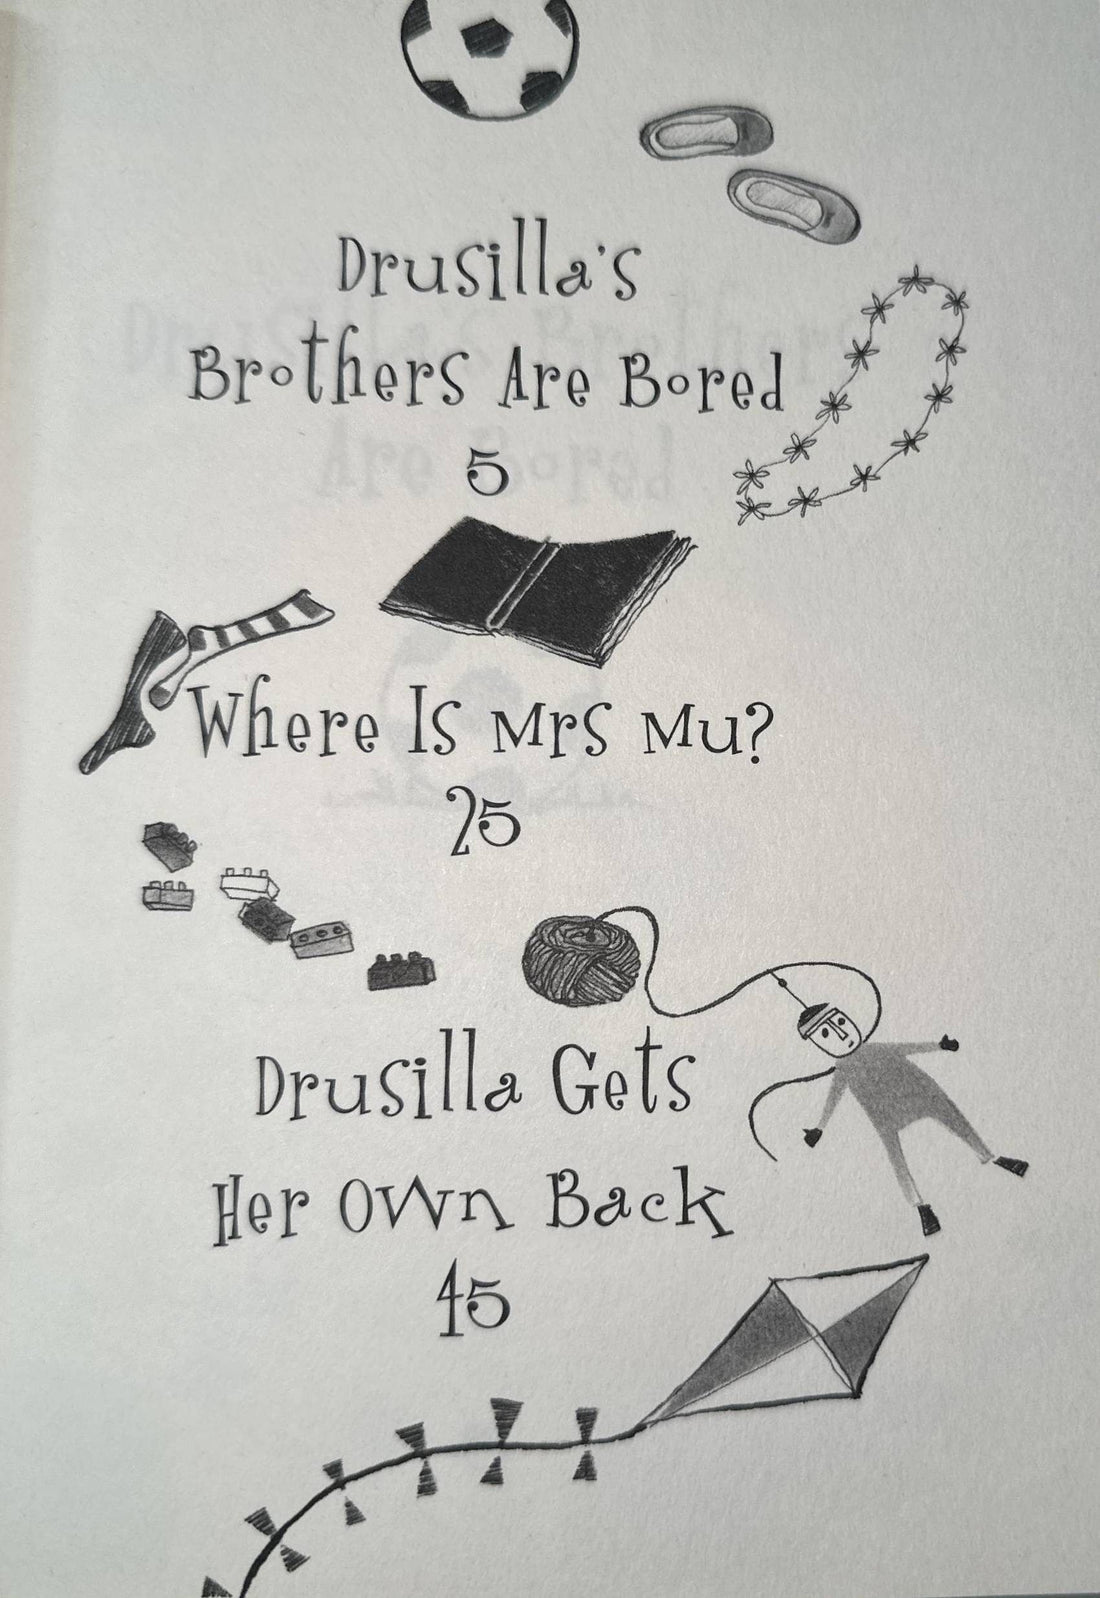 Drusilla's
Brothers Are Bored
5
Where Is Mrs Mu?
25
Drusilla Gets
Her Own Back
45